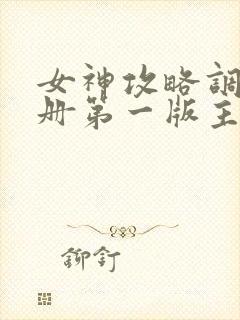 女神攻略調
册第一版主
鉚釘